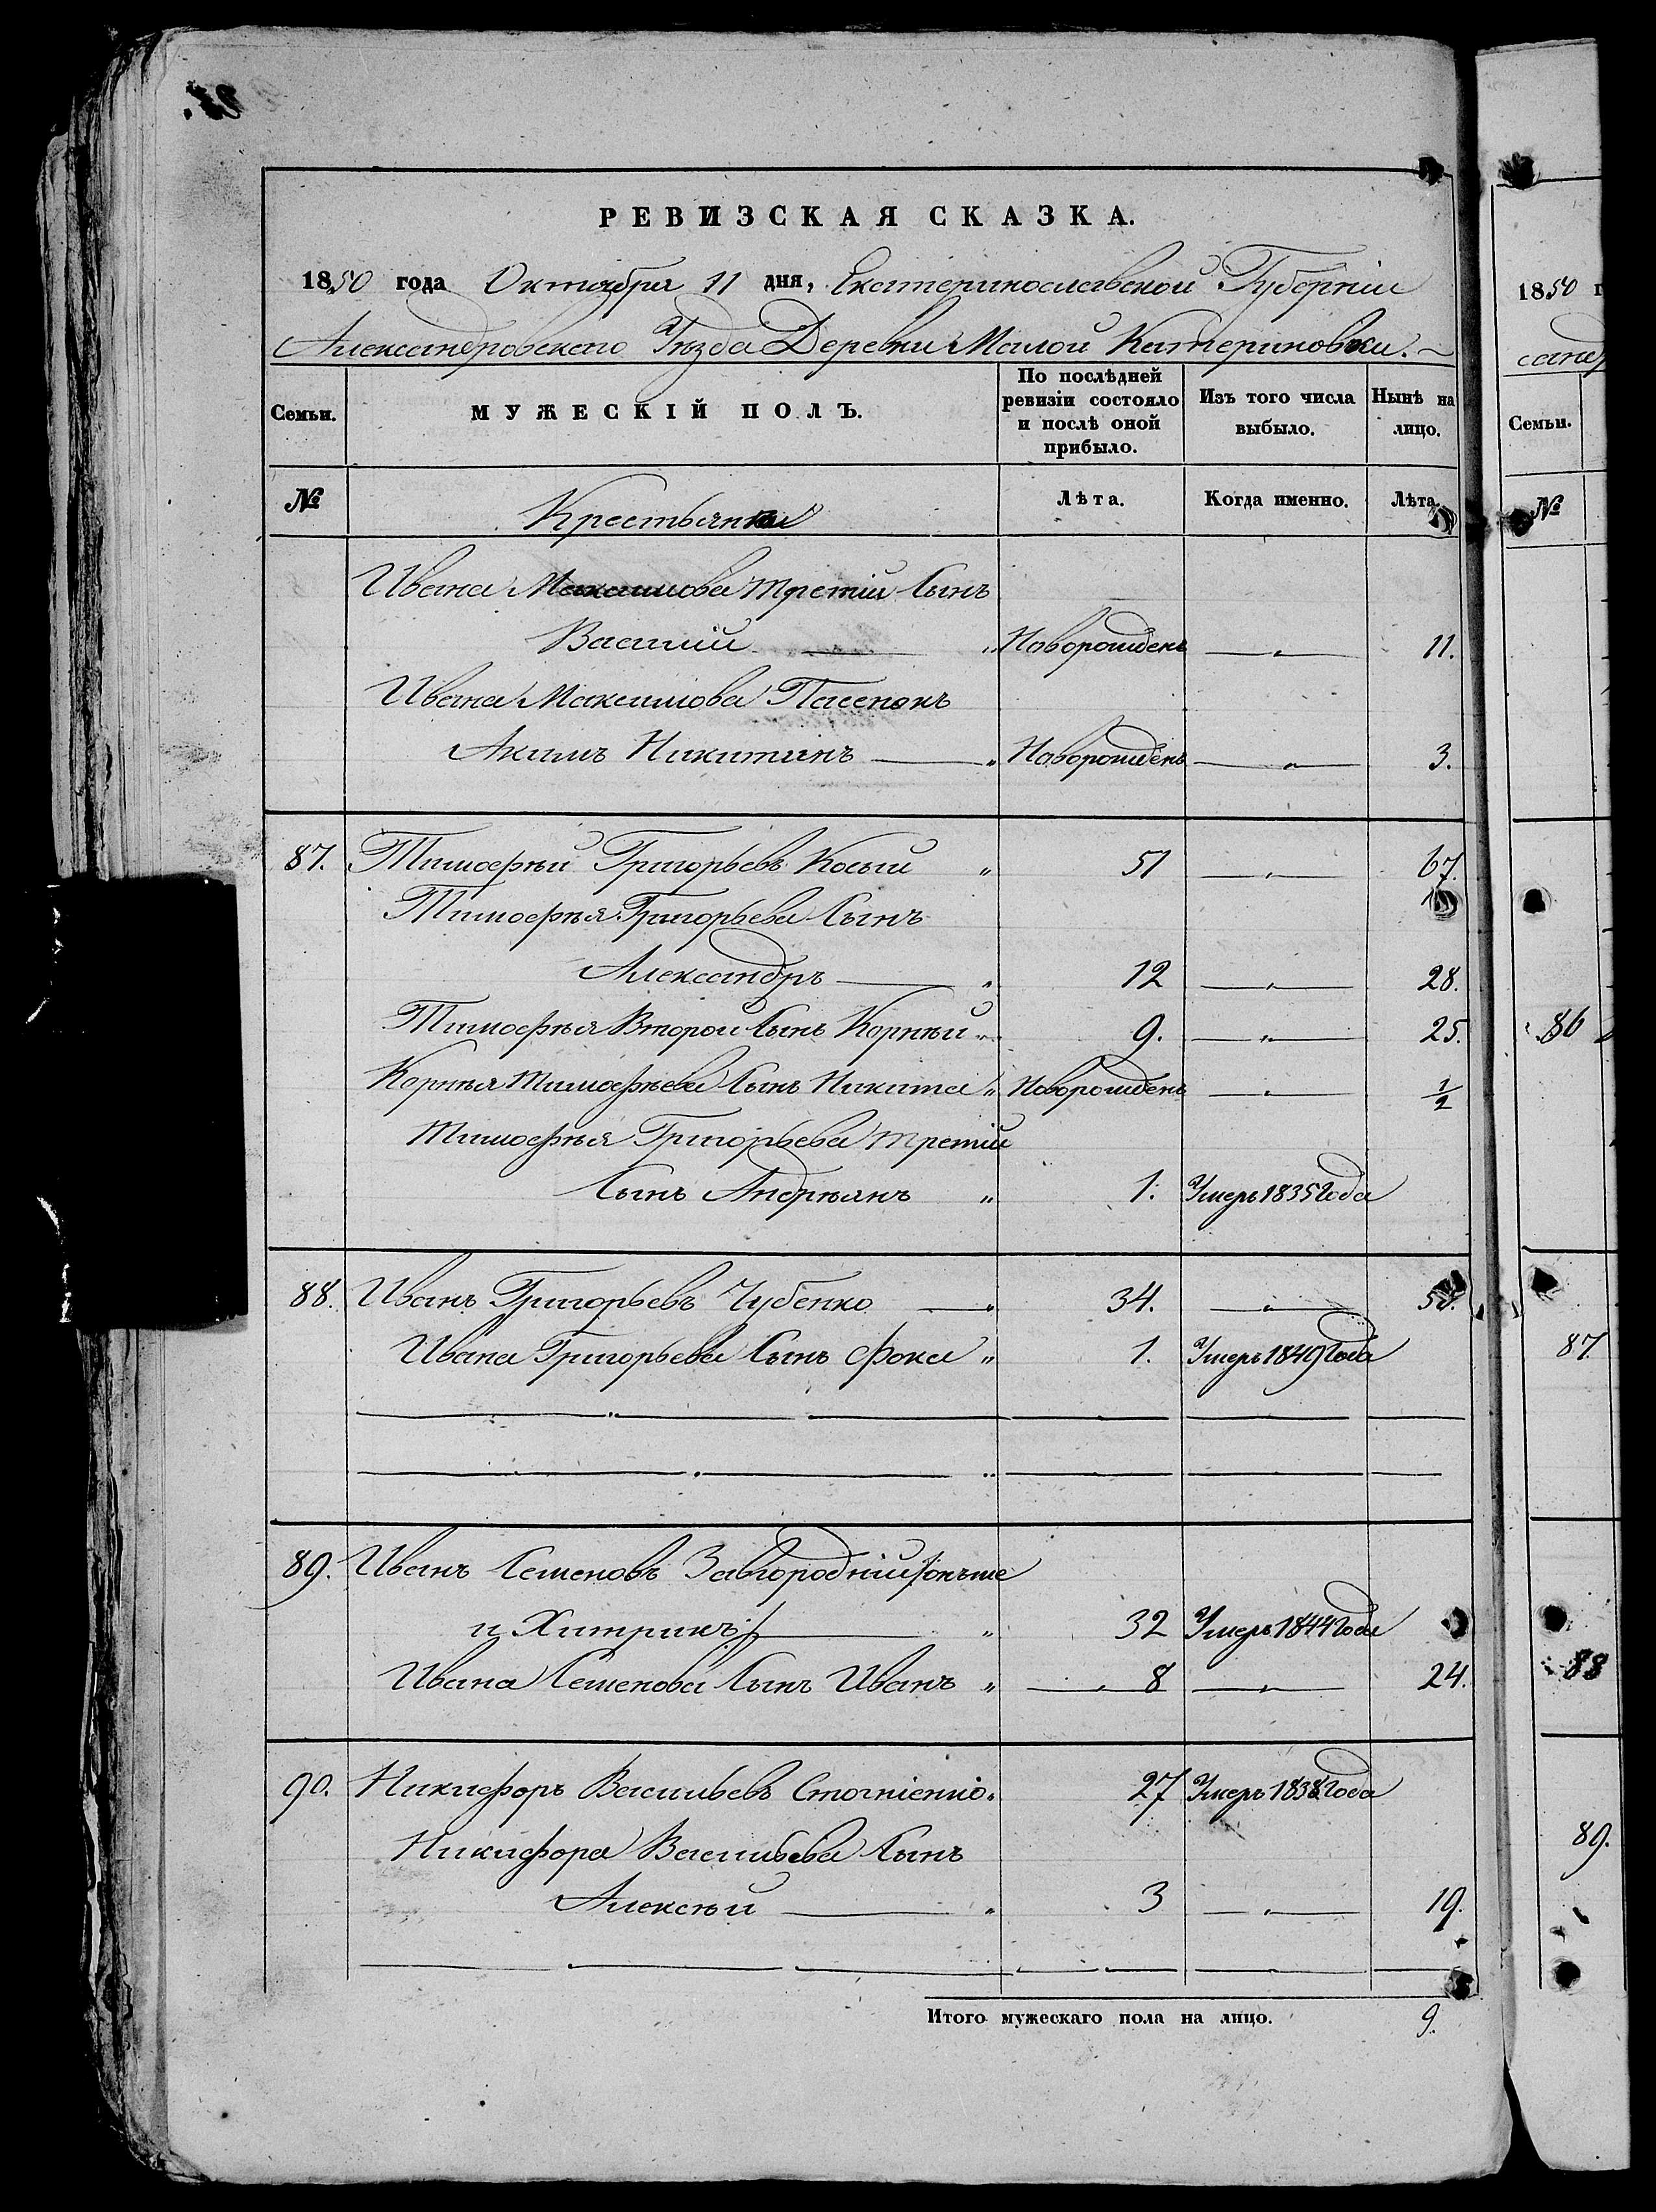 РЕВИЗСКАЯ СКАЗКА.
1850 года Октября 11 дня, Екатеринославской Губерніи
Александровскаго Уѣзда Деревни Малой Катериновки.
Семьи. МУЖЕСКІЙ ПОЛЪ. По послѣдней ревизіи состояло и послѣ оной прибыло. Изъ того числа выбыло. Нынѣ на лицо.
№ Крестьяне Лѣта. Когда именно. Лѣта.
Ивана Максимова третій Сынъ
Василій — „ Новорожденъ — „ — 11.
Ивана Максимова Пасенокъ
Акимъ Никитинъ — „ Новорожденъ — „ — 3.
87. Тимофѣй Григорьевъ Косый „ 51 — „ — 67.
Тимофѣя Григорьева Сынъ
Александръ — „ 12 — „ — 28.
Тимофѣя Второй Сынъ Корнѣй „ 9. — „ — 25.
Корнѣя Тимофѣева Сынъ Никита „ Новорожденъ — „ — 1/2
Тимофѣя Григорьева третій
Сынъ Андрѣянъ „ 1. Умеръ 1835 Года
88. Иванъ Григорьевъ Чубенко — „ 34. — „ — 50.
Ивана Григорьева Сынъ Фока „ 1. Умеръ 1849 Года
89. Иванъ Семеновъ Завгородній /онъже
и Хитрикъ/ — „ 32 Умеръ 1844 Года
Ивана Семенова Сынъ Иванъ „ 8 — „ — 24.
90. Никифоръ Васильевъ „ 27 Умеръ 1838 Года
Никифора Васильева Сынъ
Алексѣй — „ 3 — „ — 19.
Итого мужескаго пола на лицо. 9.
1850 г
сандр
Семьи.
№
86
87
88
89.